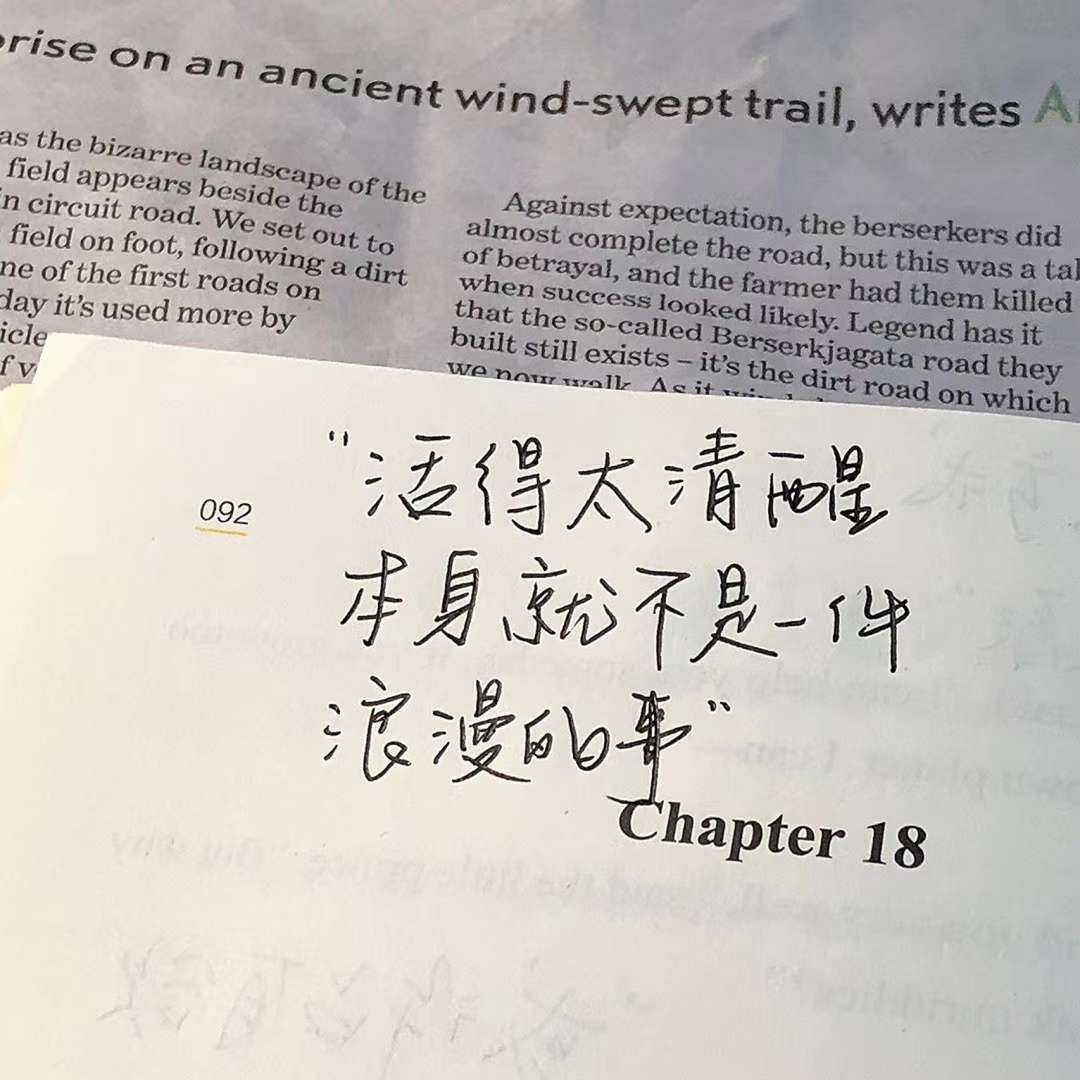 rise on an ancient wind-swept trail, writes
as the bizarre landscape of the
field appears beside the
in circuit road. We set out to
field on foot, following a dirt
ne of the first roads on
day it's used more by
icle
Against expectation, the berserkers did
almost complete the road, but this was a tal
of betrayal, and the farmer had them killed
when success looked likely. Legend has it
that the so-called Berserkjagata road they
built still exists – it's the dirt road on which
we now walk. As it
092
"活得太清醒
本身就不是一件
浪漫的事"
Chapter 18